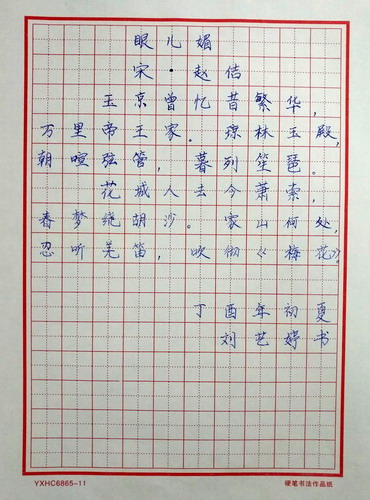 眼儿媚
宋·赵佶
玉京曾忆昔繁华，
万里帝王家。琼林玉殿，
朝喧弦管，暮列笙琶。
花城人去今萧索，
春梦绕胡沙。家山何处，
忍听羌笛，吹彻《梅花》。
丁酉年初夏
刘艺婷书
YXHC6865-11
硬笔书法作品纸